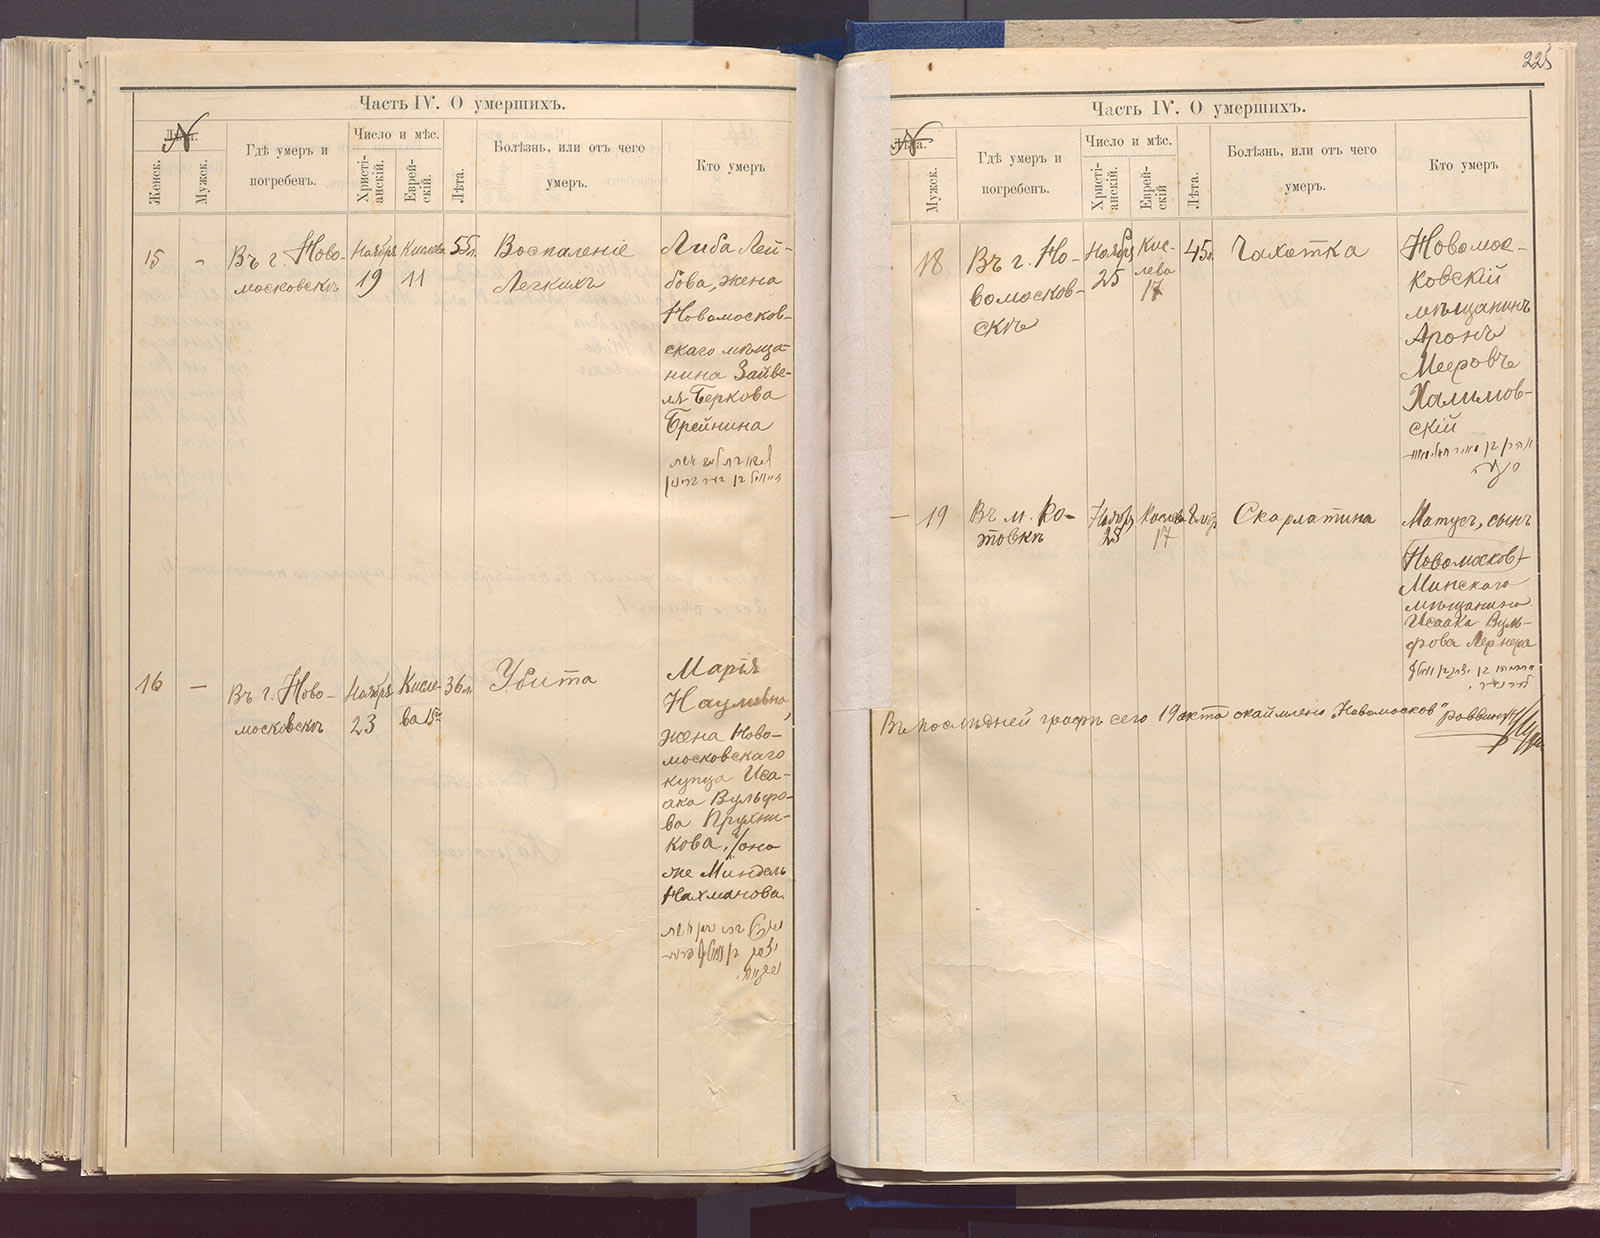 Часть IV. О умершихъ.
Лѣта.
№
Женск.
Мужск.
Гдѣ умеръ и
погребенъ.
Число и мѣс.
Христі-
анскій.
Еврей-
скій.
Лѣта.
Болѣзнь, или отъ чего
умеръ.
Кто умеръ
15
-
Въ г. Ново-
московскѣ
Ноября
19
Кислева
11
55 л.
Воспаленіе
Легкихъ
Либа Лей-
бова, жена
Новомосков-
скаго мѣща-
нина Зайве-
ля Беркова
Брейнина
16
—
Въ г. Ново-
московскѣ
Ноября
23
Кисле-
ва 15
36 л.
Убита
Марія
Наумовна,
жена Ново-
московскаго
купца Иса-
ака Вульфо-
ва Пружни-
кова, /она
же Миндель
Нахманова.
225
Часть IV. О умершихъ.
Лѣта.
№
Мужск.
Гдѣ умеръ и
погребенъ.
Число и мѣс.
Христі-
анскій.
Еврей-
скій
Лѣта.
Болѣзнь, или отъ чего
умеръ.
Кто умеръ
18
Въ г. Но-
вомосков-
скѣ
Ноября
25
Кис-
лева
17
45 л.
Чахотка
Новомос-
ковскій
мѣщанинъ
Аронъ
Мееровъ
Халимов-
скій
—
19
Въ м. Ко-
товкѣ
Ноября
25
Кислева
17
Скарлатина
Матусъ, сынъ
(Новомосков)
Минскаго
мѣщанина
Исаака Вуль-
фова Лернера
Въ послѣдней графѣ сего 19 акта окаймлено „Новомосков" раввинъ